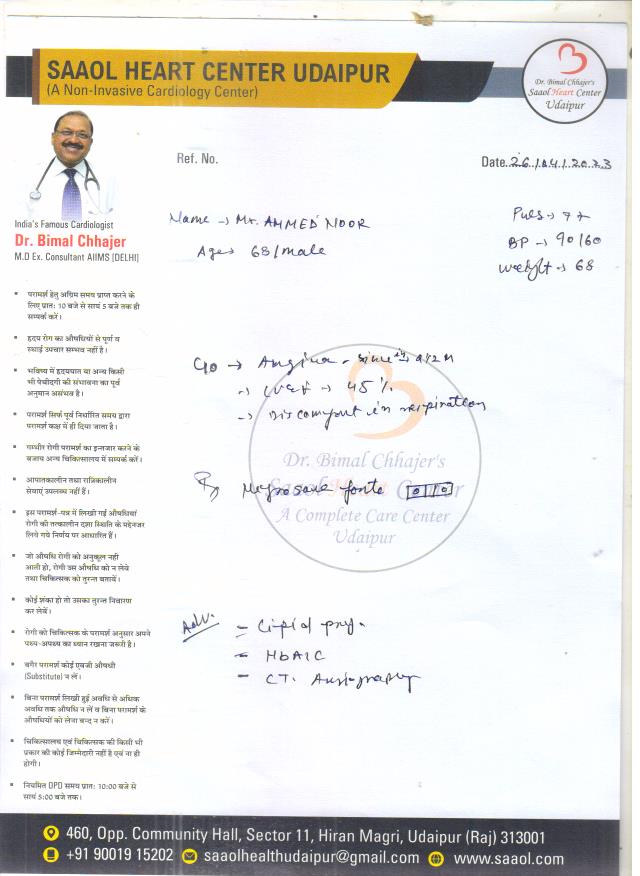 SAAOL HEART CENTER UDAIPUR
(A Non-Invasive Cardiology Center)
Dr. Bimal Chhajer's
Saaol Heart Center
Udaipur
India's Famous Cardiologist
Dr. Bimal Chhajer
M.D Ex. Consultant AIIMS [DELHI]
Ref. No.
Date..26/04/2023
Name → Mr. AHMED NOOR
Age → 68/male
Puls → 77
BP → 90/60
weight → 68
परामर्श हेतु अग्रिम समय प्राप्त करने के
लिए प्रातः 10 बजे से सायं 5 बजे तक ही
सम्पर्क करें।
हृदय रोग का औषधियों से पूर्ण व
स्थाई उपचार सम्भव नहीं है।
भविष्य में हृदयघात या अन्य किसी
भी पेचीदगी की संभावना का पूर्व
अनुमान असंभव है।
परामर्श सिर्फ पूर्व निर्धारित समय द्वारा
परामर्श कक्ष में ही दिया जाता है।
गम्भीर रोगी परामर्श का इन्तजार करने के
बजाय अन्य चिकित्सालय में सम्पर्क करें।
आपातकालीन तथा रात्रिकालीन
सेवाएं उपलब्ध नहीं हैं।
इस परामर्श-पत्र में लिखी गई औषधियां
रोगी की तत्कालीन दशा स्थिति के मद्देनजर
लिये गये निर्णय पर आधारित हैं।
जो औषधि रोगी को अनुकूल नहीं
आती हो, रोगी उस औषधि को न लेवे
तथा चिकित्सक को तुरन्त बतायें।
कोई शंका हो तो उसका तुरन्त निवारण
कर लेवें।
रोगी को चिकित्सक के परामर्श अनुसार अपने
पथ्य-अपथ्य का ध्यान रखना जरूरी है।
बगैर परामर्श कोई एवजी औषधी
(Substitute) न लें।
बिना परामर्श लिखी हुई अवधि से अधिक
अवधि तक औषधि न लें व बिना परामर्श के
औषधियों को लेना बन्द न करें।
चिकित्सालय एवं चिकित्सक की किसी भी
प्रकार की कोई जिम्मेदारी नहीं है एवं ना ही
होगी।
नियमित OPD समय प्रातः 10:00 बजे से
सायं 5:00 बजे तक।
C/o → Angina - since
→ LVEF → 45 %
→ Discomfort in respiration
Dr. Bimal Chhajer's
Saaol Heart Center
A Complete Care Center
Udaipur
Rx forte
Adv.
= Lipid
= HbA1C
= CT. Angiography
460, Opp. Community Hall, Sector 11, Hiran Magri, Udaipur (Raj) 313001
+91 90019 15202 saaolhealthudaipur@gmail.com www.saaol.com